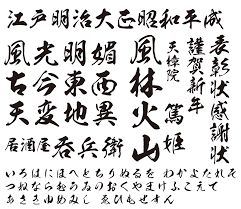 江戸明治大正昭和平成
風光明媚
古今東西
天変地異
居酒屋 呑兵衛
風林火山
天樟院
篤姫
謹賀新年
表彰状感謝状
いろはにほへとちりぬるを わかよたれそ
つねならむうゐのおくやまけふこえて
あさきゆめみし ゑひもせすん